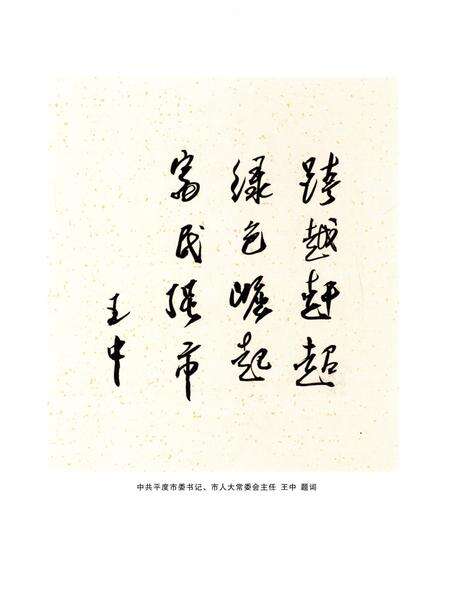 跨越赶超
绿色崛起
富民强市
王中
中共平度市委书记、市人大常委会主任 王中 题词